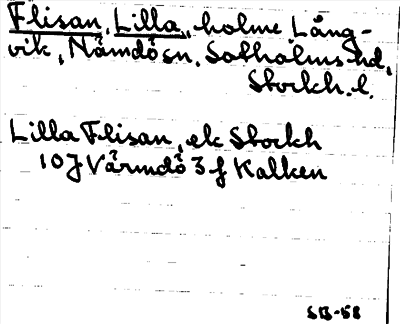 Flisan, Lilla, holme Lång-
vik, Nämdö sn. Sotholms hd,
Stockh. l.
Lilla Flisan, ek Stockh
10J Värmdö 3f Kalken
SB-58